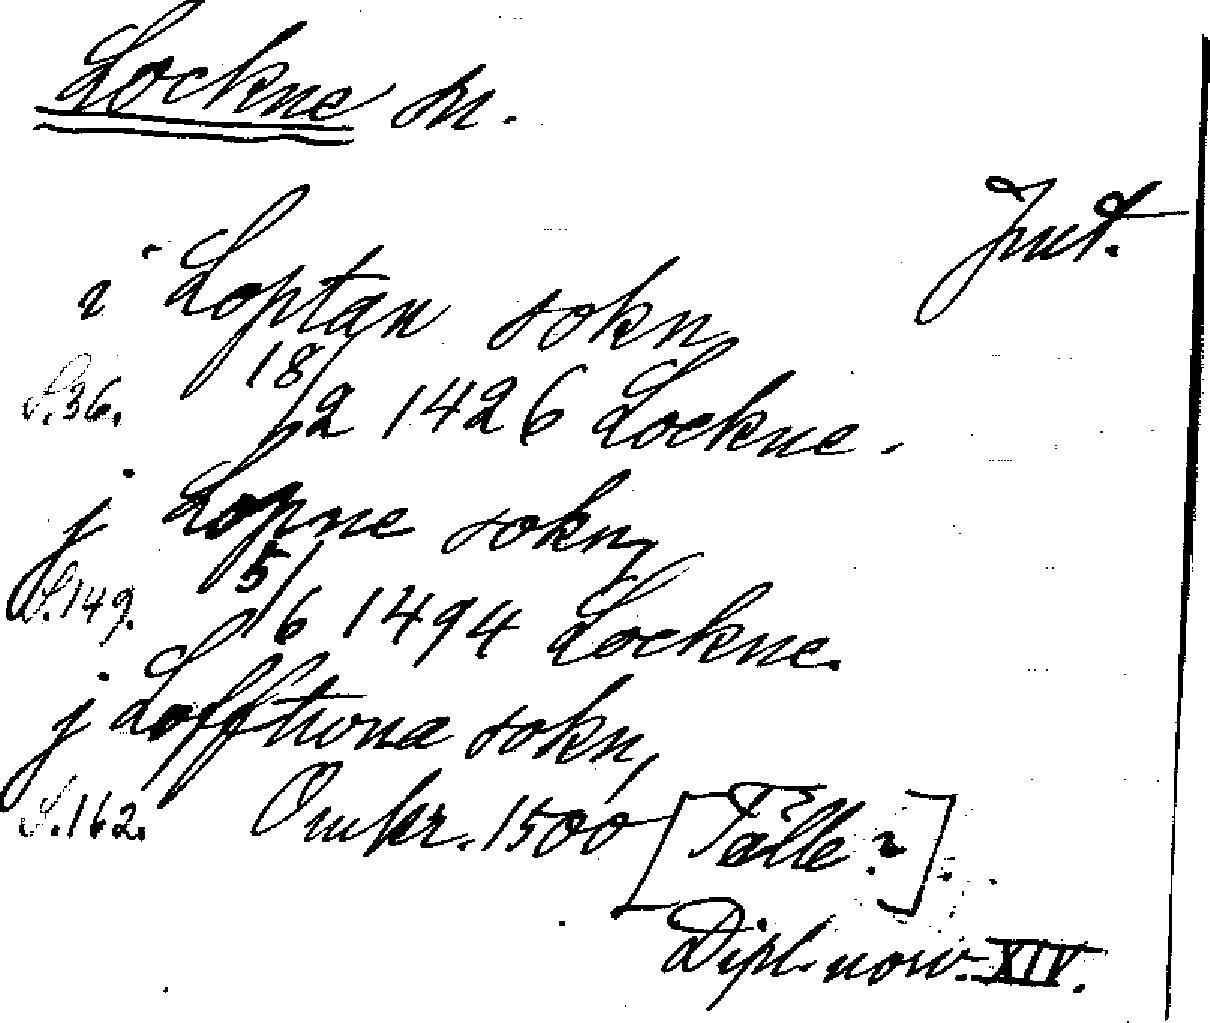 Lockne sn.
Jmt.
i Loptan sokn
S.36. 18/2 1426 Lockne.
j Lopne sokn,
S.149. 5/6 1494 Lockne.
j Lofftwna sokn,
S.162. Omkr. 1500 [Tålle?].
Dipl. norv. XIV.